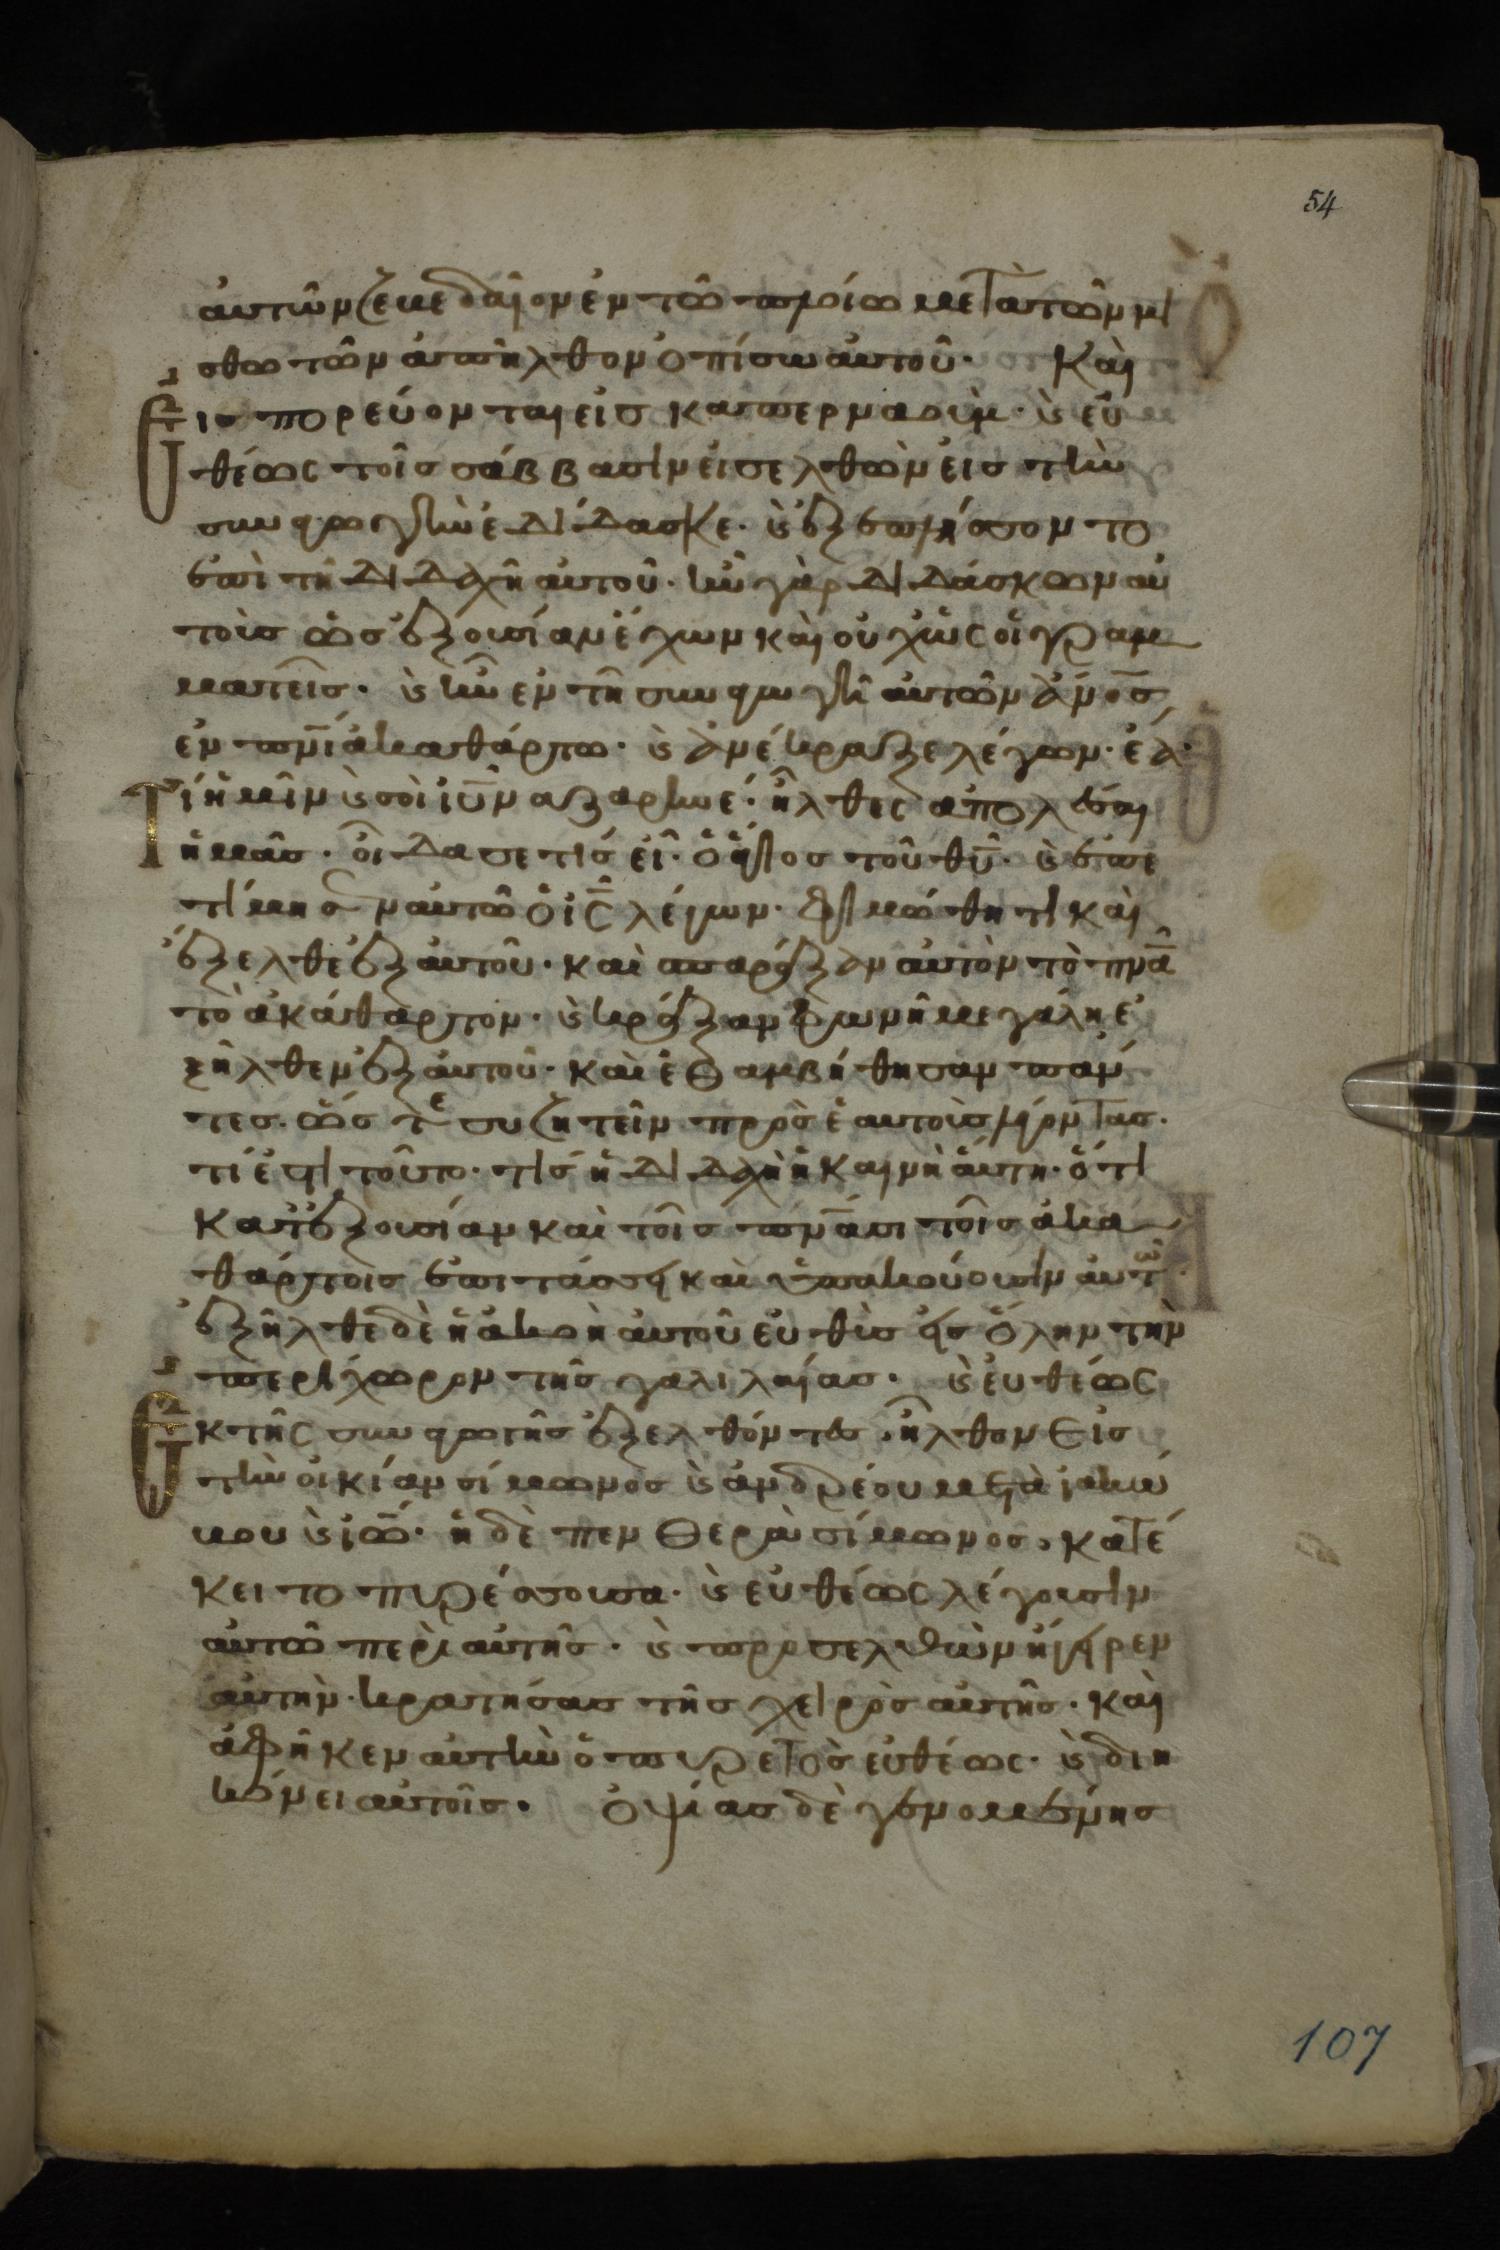 54
αὐτῶν ζεβεδαῖον ἐν τῶ πλοίω μετὰ τῶν μι
σθωτῶν ἀπῆλθον ὀπίσω αὐτοῦ. Καὶ
εἰσπορεύονται εἰς καπερναούμ. καὶ εὐ
θέως τοῖς σάββασιν εἰσελθὼν εἰς τὴν
συναγωγὴν ἐδίδασκε. καὶ ἐξεπλήσσοντο
ἐπὶ τῆ διδαχῆ αὐτοῦ. ἦν γὰρ διδάσκων αὐ
τοὺς ὡς ἐξουσίαν ἔχων καὶ οὐχ ὡς οἱ γραμ
ματεῖς. καὶ ἦν ἐν τῆ συναγωγῆ αὐτῶν ἄνος
ἐν πνι ἀκαθάρτω. καὶ ἀνέκραξε λέγων. ἔα.
Τί ἡμῖν καὶ σοὶ ιυ ναζαρηνέ. ἦλθες ἀπολέσαι
ἡμᾶς. οἶδα σε τίς εἶ. ὁ ἅγιος τοῦ θυ. καὶ ἐπε
τίμησεν αὐτῶ ὁ ις λέγων. φιμώθητι καὶ
ἔξελθε ἐξ αὐτοῦ. καὶ σπαράξαν αὐτὸν τὸ πνα
τὸ ἀκάθαρτον. καὶ κράξαν φωνῆ μεγάλη ἐ
ξῆλθεν ἐξ αὐτοῦ. καὶ ἐθαμβήθησαν πάν
τες. ὥστε συζητεῖν πρὸς ἑαυτοὺς λέγοντας.
τί ἐστι τοῦτο. τίς ἡ διδαχὴ ἡ καινὴ αὕτη. ὅτι
κατ ἐξουσίαν καὶ τοῖς πνασι τοῖς ἀκα
θάρτοις ἐπιτάσσει καὶ ὑπακούουσιν αὐτῶ.
ἐξῆλθε δὲ ἡ ἀκοὴ αὐτοῦ εὐθὺς εἰς ὅλην τὴν
περίχωρον τῆς γαλιλαίας. καὶ εὐθέως
ἐκ τῆς συναγωγῆς ἐξελθόντες, ἦλθον εἰς
τὴν οἰκίαν σίμωνος καὶ ἀνδρέου μετὰ ἰακώ
βου καὶ ιω. ἡ δὲ πενθερὰ σίμωνος, κατέ
κειτο πυρέσσουσα. καὶ εὐθέως λέγουσιν
αὐτῶ περὶ αὐτῆς. καὶ προσελθὼν ἤγειρεν
αὐτὴν. κρατήσας τῆς χειρὸς αὐτῆς. καὶ
ἀφῆκεν αὐτὴν ὁ πυρετὸς εὐθέως. καὶ διη
κόνει αὐτοῖς. Ὀψίας δὲ γενομένης
107